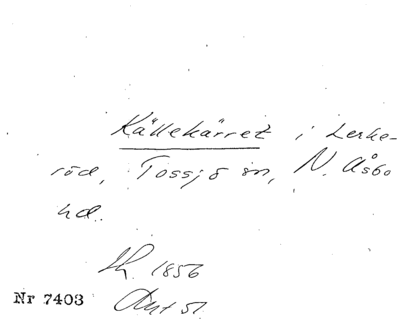 Källekärret i Lerke-
röd, Tossjö sn, N. Åsbo
hd.
Sk. 1856
Nr 7403 Avt 51.